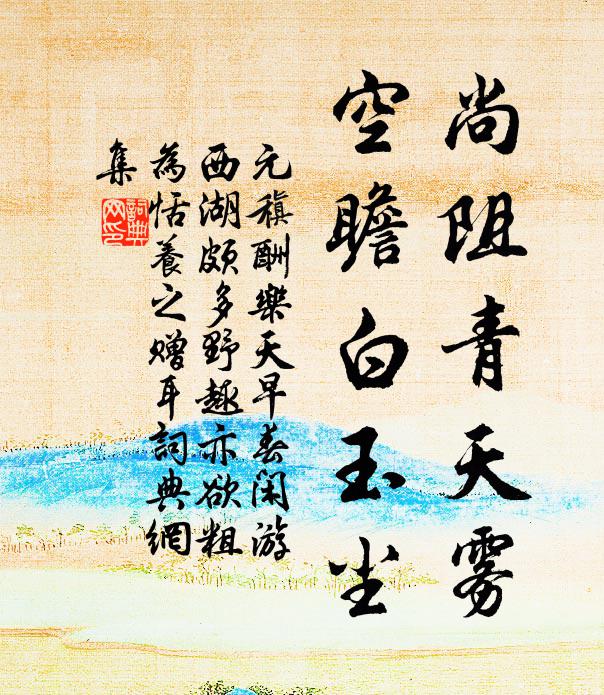 尚阻青天雾
空瞻白玉尘
元稹酬樂天早春闲游
西湖颇多野趣亦欲粗
為恬養之赠耳詞典網
集
詞典
网印